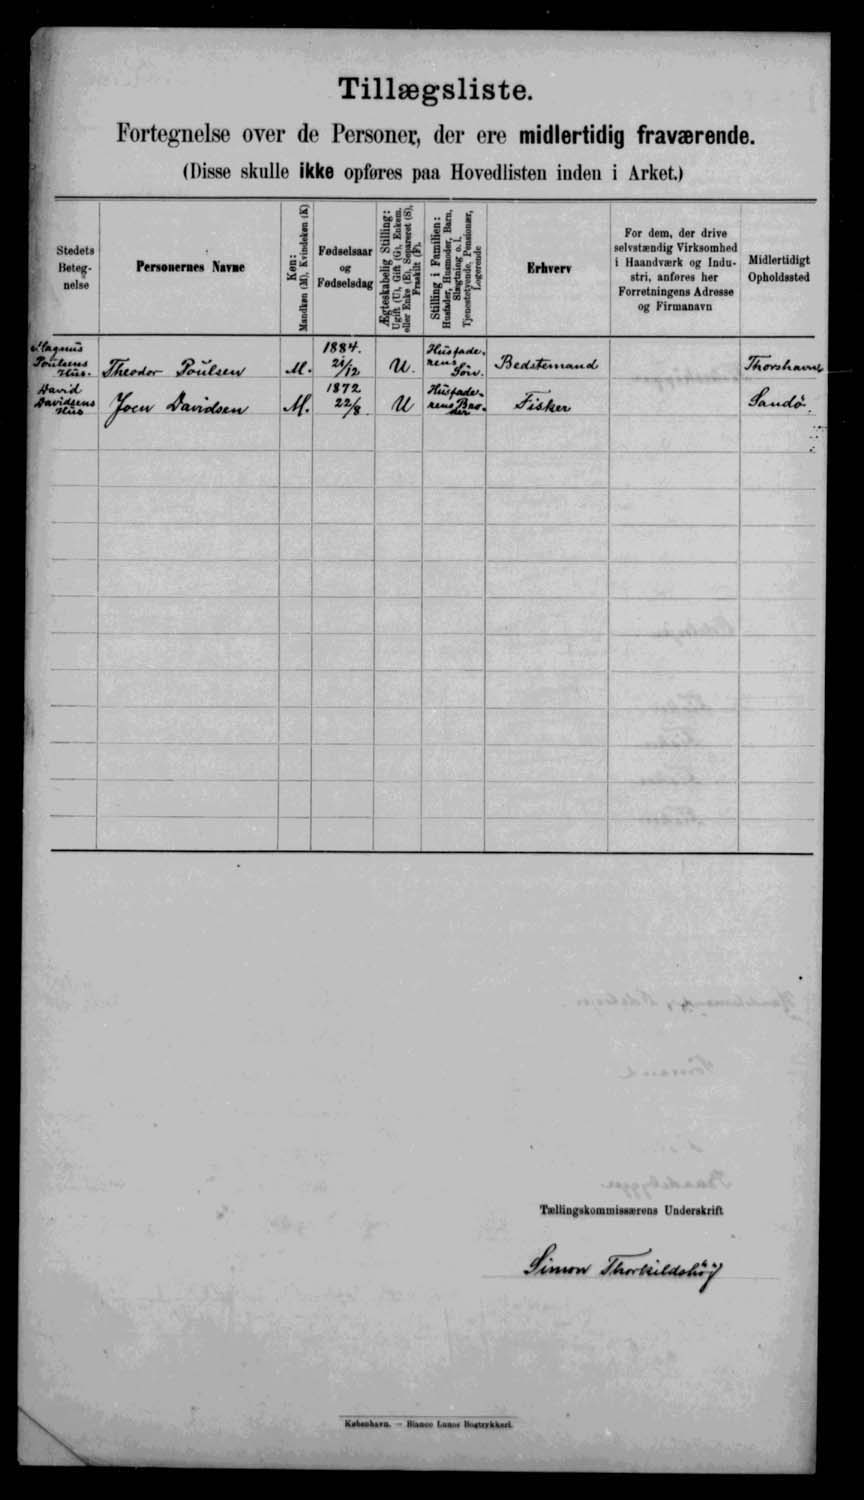 Tillægsliste.
Fortegnelse over de Personer, der ere midlertidig fraværende.
(Disse skulle ikke opføres paa Hovedlisten inden i Arket.)
Stedets
Beteg-
nelse
Personernes Navne
Køn:
Mandkøn (M), Kvindekøn (K)
Fødselsaar
og
Fødselsdag
Ægteskabelig Stilling:
Ugift (U), Gift (G), Enkem.
eller Enke (E), Separeret (S),
Fraskilt (F).
Stilling i Familien:
Husfader, Husmoder, Barn,
Slægtning o. l.
Tjenestetyende, Pensionær,
Logerende
Erhverv
For dem, der drive
selvstændig Virksomhed
i Haandværk og Indu-
stri, anføres her
Forretningens Adresse
og Firmanavn
Midlertidigt
Opholdssted
Magnus
Poulsens
Hus.
Theodor Poulsen
M.
1884.
21/12
U.
Husfade-
rens
Søn.
Bedstemand
Thorshavn
David
Davidsens
Hus
Joen Davidsen
M.
1872
22/8
U
Husfade-
rens Bro-
der
Fisker
Sandø.
Tællingskommissærens Underskrift
Simon Thorkildshöj
København. — Bianco Lunos Bogtrykkeri.